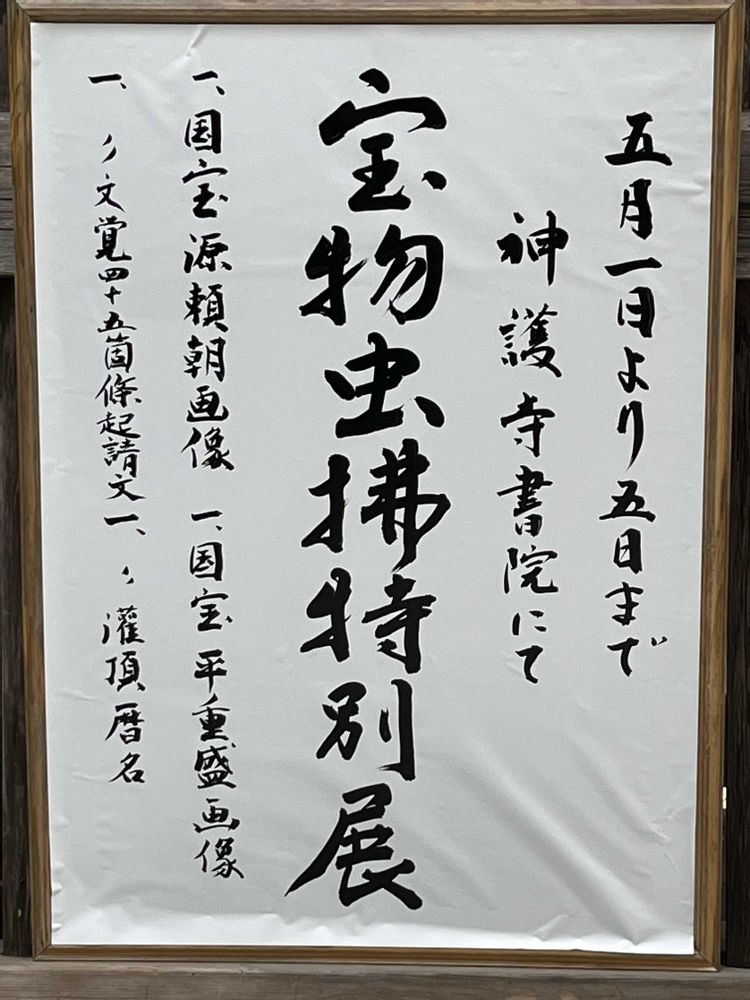 五月一日より五日まで
神護寺書院にて
宝物虫拂特別展
一、国宝源頼朝画像 一、国宝平重盛画像
一、〃文覚四十五箇條起請文 一、〃灌頂暦名